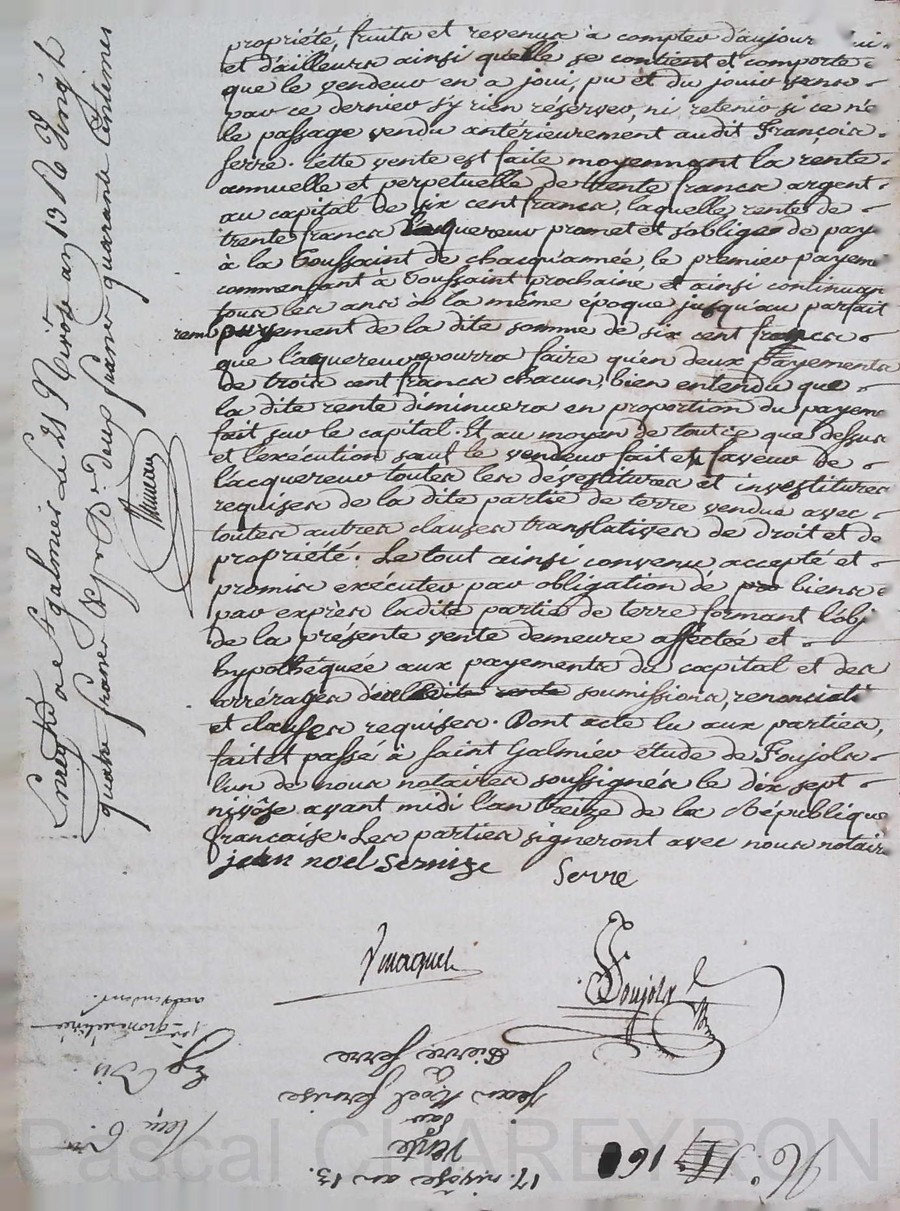 propriété, fruits et revenus à compter d'aujour
et d'ailleurs ainsi qu'elle se contient et comporte
que le vendeur en a joui, pu et du jouir sans
par ce dernier s'y rien réserver, ni retenir si ce n'e
le passage vendu antérieurement audit François
Serre. Cette vente est faite moyennant la rente
annuelle et perpetuelle de trente francs argent
au capital de six cent francs, laquelle rente de
trente francs l'acquereur promet et s'oblige de pay
à la Toussaint de chacqu'année, le premier payeme
commençant à Toussaint prochaine, et ainsi continuan
tous les ans à la même époque, jusqu'au parfait
remboursement de la dite somme de six cent francs
que l'aquereur pourra faire qu'en deux Payements
de trois cent francs chacun, bien entendu que
la dite rente diminuera en proportion du payeme
fait sur le capital. Et au moyen de tout ce que dessus
et l'exécution sauf le vendeur fait en faveur de
l'acquereur toutes les dévestitures et investitures
requises de la dite partie de terre vendue avec
toutes autres clauses translatives de droit et de
propriété. Le tout ainsi convenu, accepté et
promis exécuter par obligation de biens
par exprès ladite partie de terre formant l'obj
de la présente vente demeure affectée et
hypothéquée aux payements du capital et des
arrérages de ladite rente soumissions, renonciati
et clauses requises. Dont acte lu aux parties,
fait et passé à Saint Galmier étude de Foujols
l'un de nous notaires soussignés le dix sept
nivôse avant midi l'an treize de la République
francaise. Les parties signeront avec nous notair
jean noel Serníze
Serre
Foujols
Enregistré à St Galmier le 21 Nivose an 13
quatre francs deux francs quarante Centimes
N.° 160
17. nivôse an 13.
Vente
par
Jean Noel Sernise
à
Pierre Serre